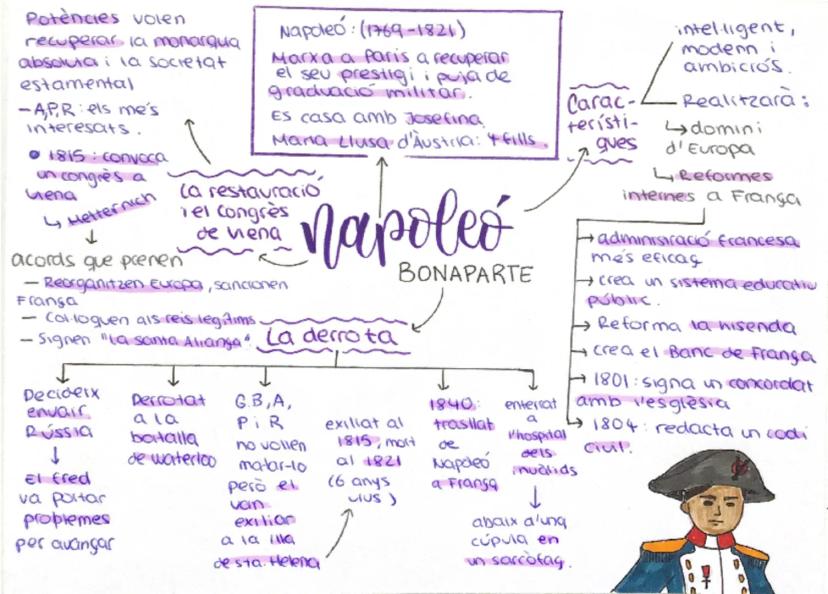 Potències volen
recuperar la monarquia
absoluta i la societat
estamental
- A,P,R: els més
interesats.
• 1815: convoca
un congrès a
Viena
↳ Metternich
acords que prenen
- Reorganitzen Europa, sancionen
França
- Col·loquen als reis legítims
- Signen "la santa Aliança".
La restauració
i el congrès
de viena
Napoleó: (1769-1821)
Marxa a París a recuperar
el seu prestigi i puja de
graduació militar.
Es casa amb Josefina
Maria Lluïsa d'Àustria: 4 fills.
napoleó
BONAPARTE
Carac-
terísti-
ques
intel·ligent,
modern i
ambiciós.
Realitzarà:
↳ domini
d'Europa
↳ Reformes
internes a França
→ administració francesa
més eficaç
→ crea un sistema educatiu
públic.
→ Reforma la hisenda
→ crea el Banc de França
→ 1801: signa un concordat
amb l'església
→ 1804: redacta un codi
civil.
La derrota
Decideix
envair
Rússia
↓
El fred
va portar
problemes
per avançar
Derrotat
a la
batalla
de waterloo
G.B, A,
P i R
no volien
matar-lo
però el
van
exiliar
a la illa
de sta. Helena
exiliat al
1815, mort
al 1821
(6 anys
vius)
1840:
trasllat
de
Napoleó
a França
enterrat
a
l'hospital
dels
invàlids
↓
abaix d'una
cúpula en
un sarcòfag.